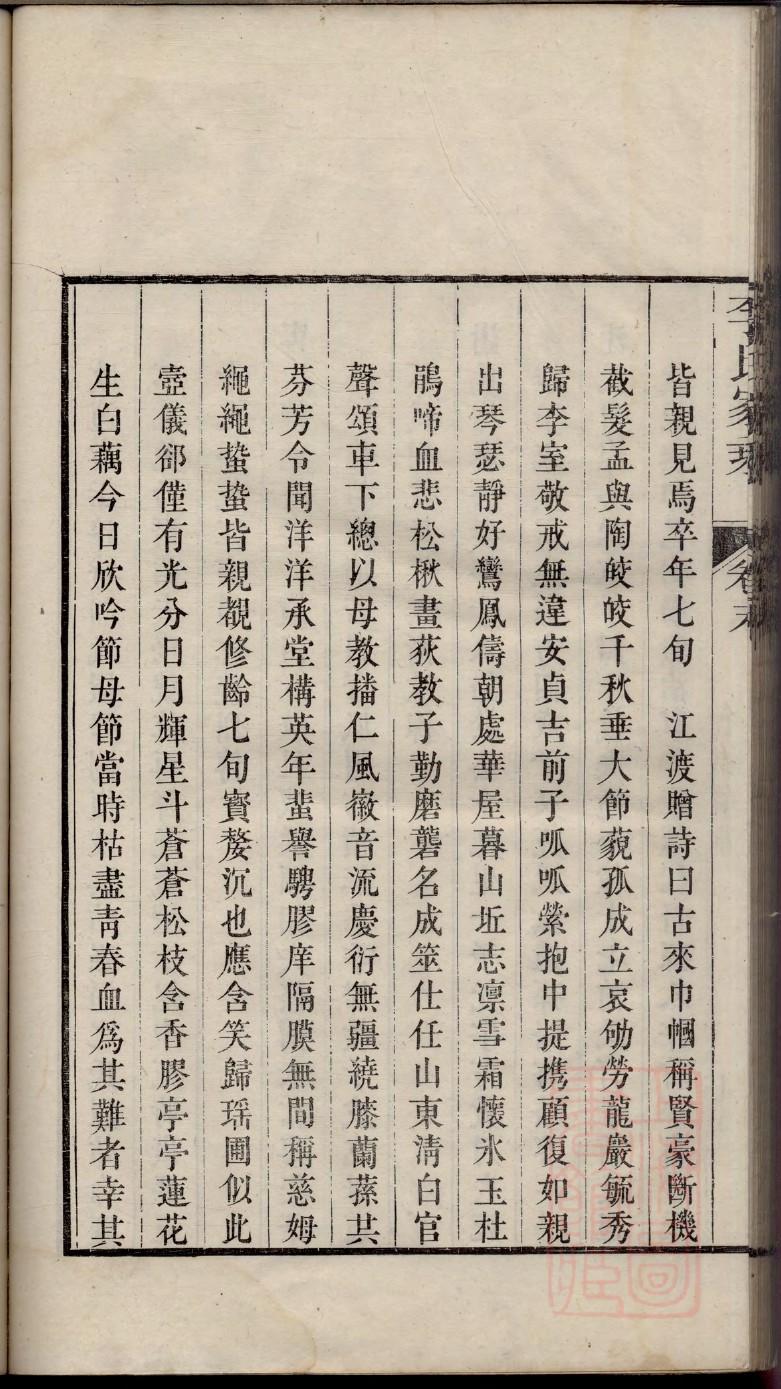 李氏家乘 卷末
皆親見焉卒年七旬　江渡贈詩曰古來巾幗稱賢豪斷機
截髮孟與陶皎皎千秋垂大節藐孤成立哀劬勞龍巖毓秀
歸李室敬戒無違安貞吉前子呱呱縈抱中提携顧復如親
出琴瑟靜好鸞鳳儔朝處華屋暮山坵志凛雪霜懷氷玉杜
鵑啼血悲松楸畫荻教子勤磨礱名成筮仕任山東淸白官
聲頌車下總以母教播仁風徽音流慶衍無疆繞膝蘭蓀共
芬芳令聞洋洋承堂構英年蜚譽騁膠庠隔膜無間稱慈姆
繩繩蟄蟄皆親覩修齡七旬寳婺沉也應含笑歸瑤圃似此
壼儀郤僅有光分日月輝星斗蒼蒼松枝含香膠亭亭蓮花
生白藕今日欣吟節母節當時枯盡靑春血爲其難者幸其